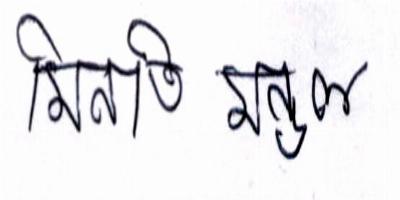 মিনতি মন্ডল